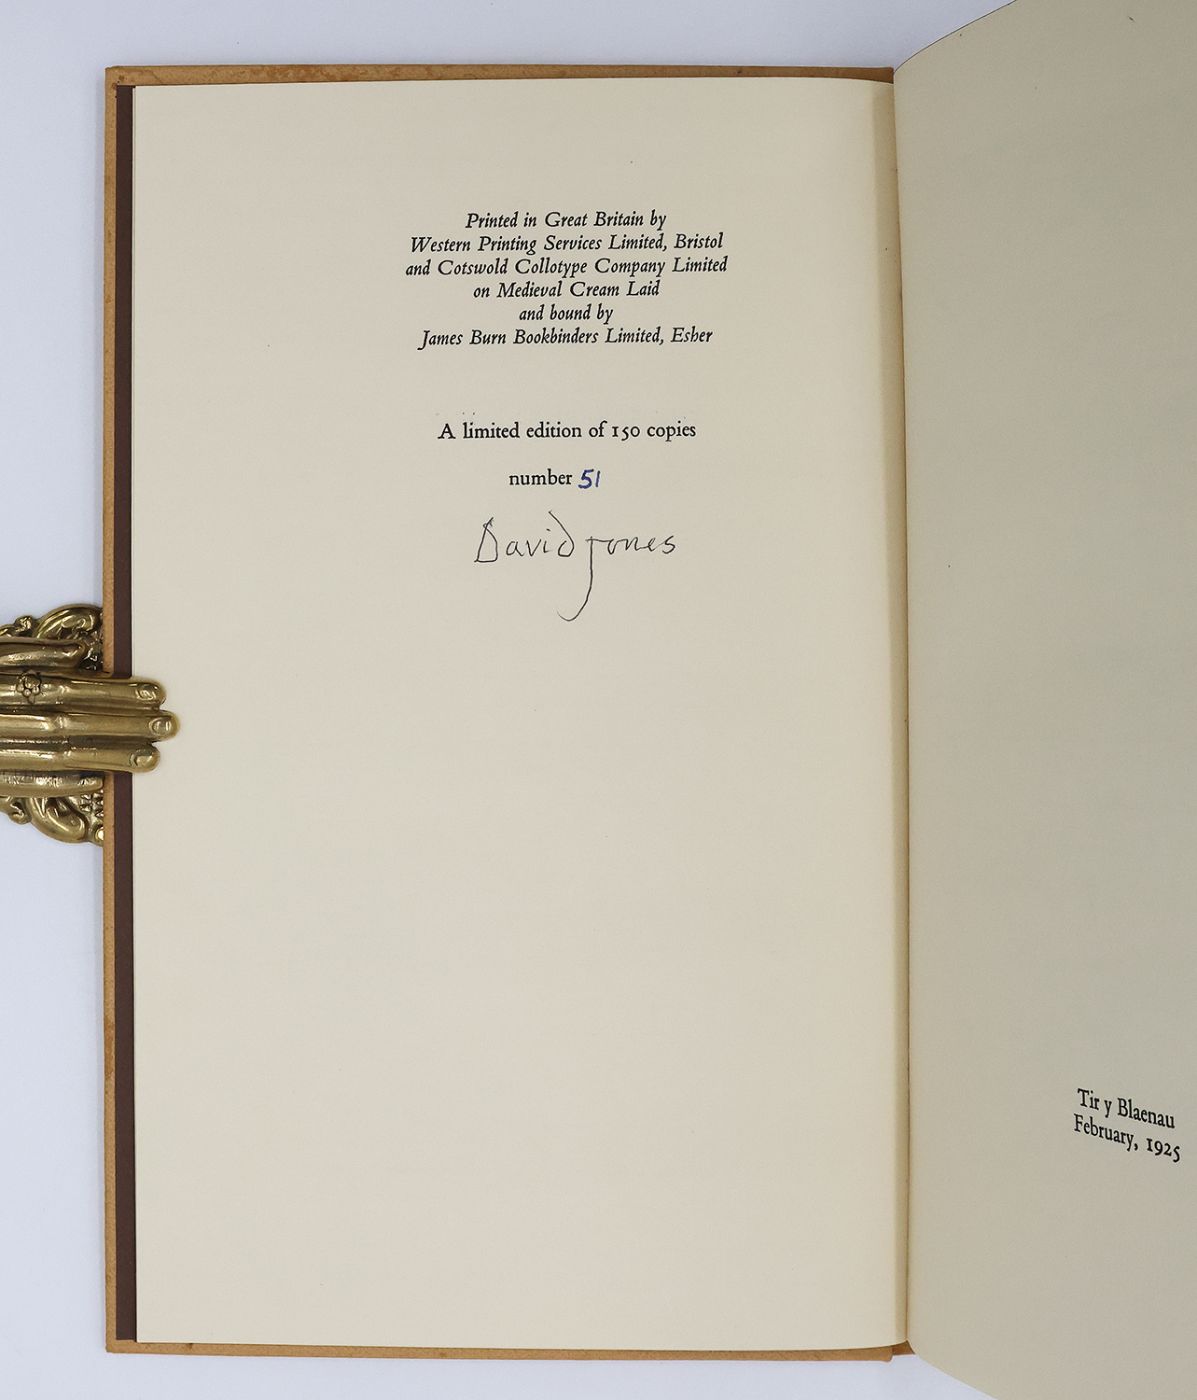 Printed in Great Britain by
Western Printing Services Limited, Bristol
and Cotswold Collotype Company Limited
on Medieval Cream Laid
and bound by
James Burn Bookbinders Limited, Esher
A limited edition of 150 copies
number 51
David Jones
Tir y Blaenau
February, 1925